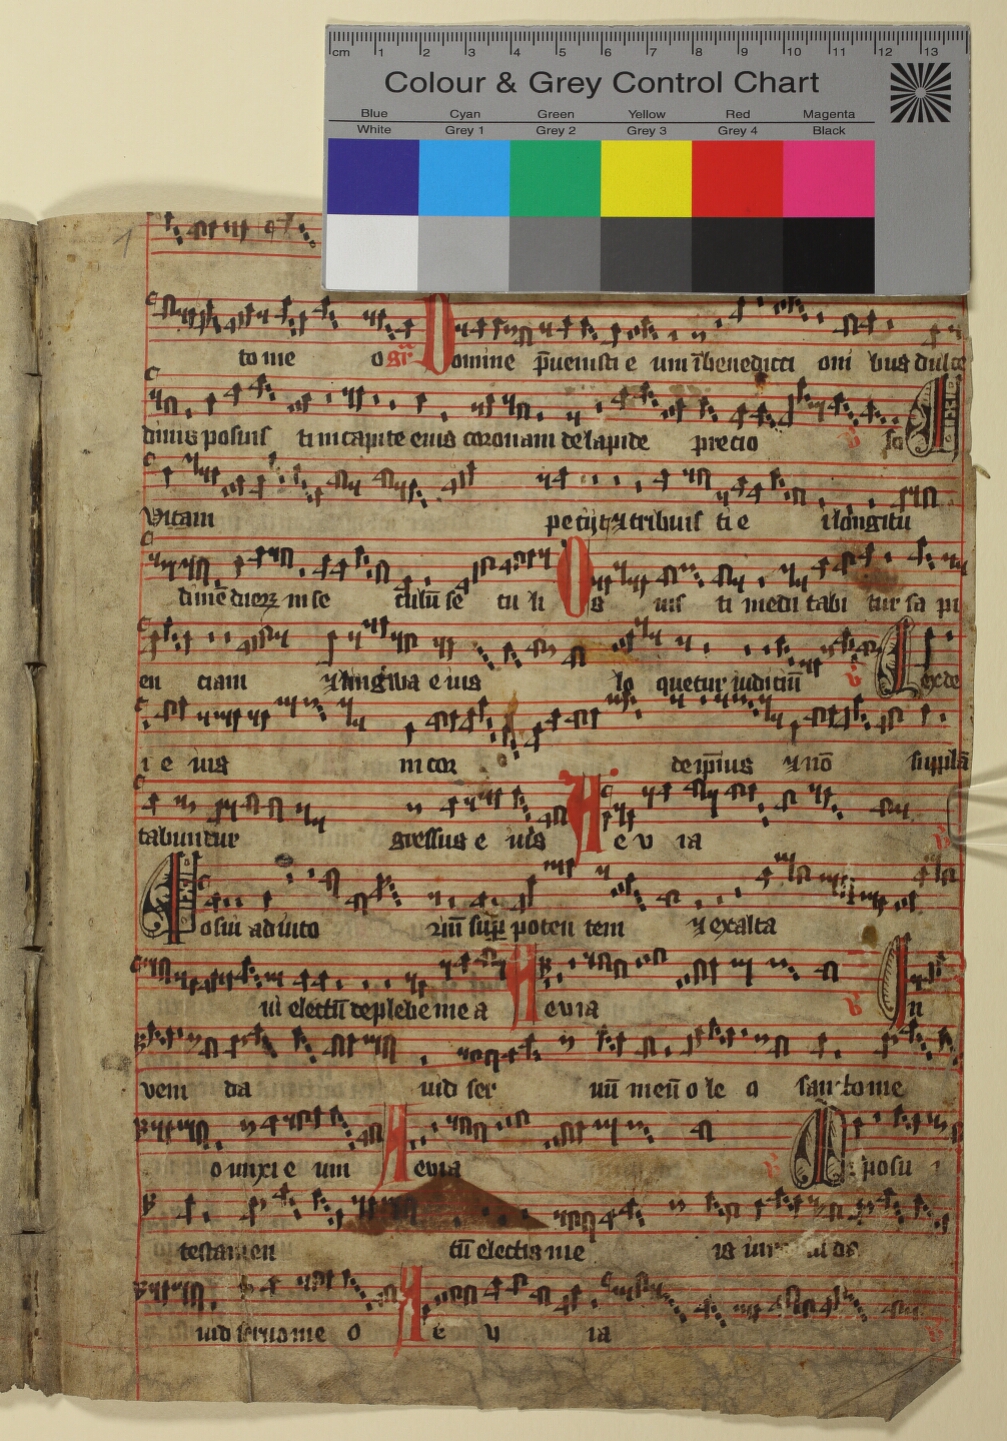 cm 1 2 3 4 5 6 7 8 9 10 11 12 13
Colour & Grey Control Chart
Blue Cyan Green Yellow Red Magenta
White Grey 1 Grey 2 Grey 3 Grey 4 Black
1
to me o gr̄ Domine p̄uenisti e um ībenedicti oni bus dulce
dinis posuis ti in capite eius coronam de lapide precio so
Vitam pe tijt ⁊ tribuis ti e ī longitu
dinē dierꝝ in se culū se cu li Os ius ti medi tabi tur sa pi
en ciam ⁊ lingwa e ius lo quetur iudiciū Lex de
i e ius in cor de ip̄ius ⁊ nō supplā
tabuntur gressus e ius A e v ia
Posui ad iuto riū suꝑ poten tem ⁊ exalta
ui electū de plebe me a A evia In
veni da uid ser uū meū o le o sancto me
o unxi e um A evia posu i
testamen tū electis me is
uid seruo me o A e v ia